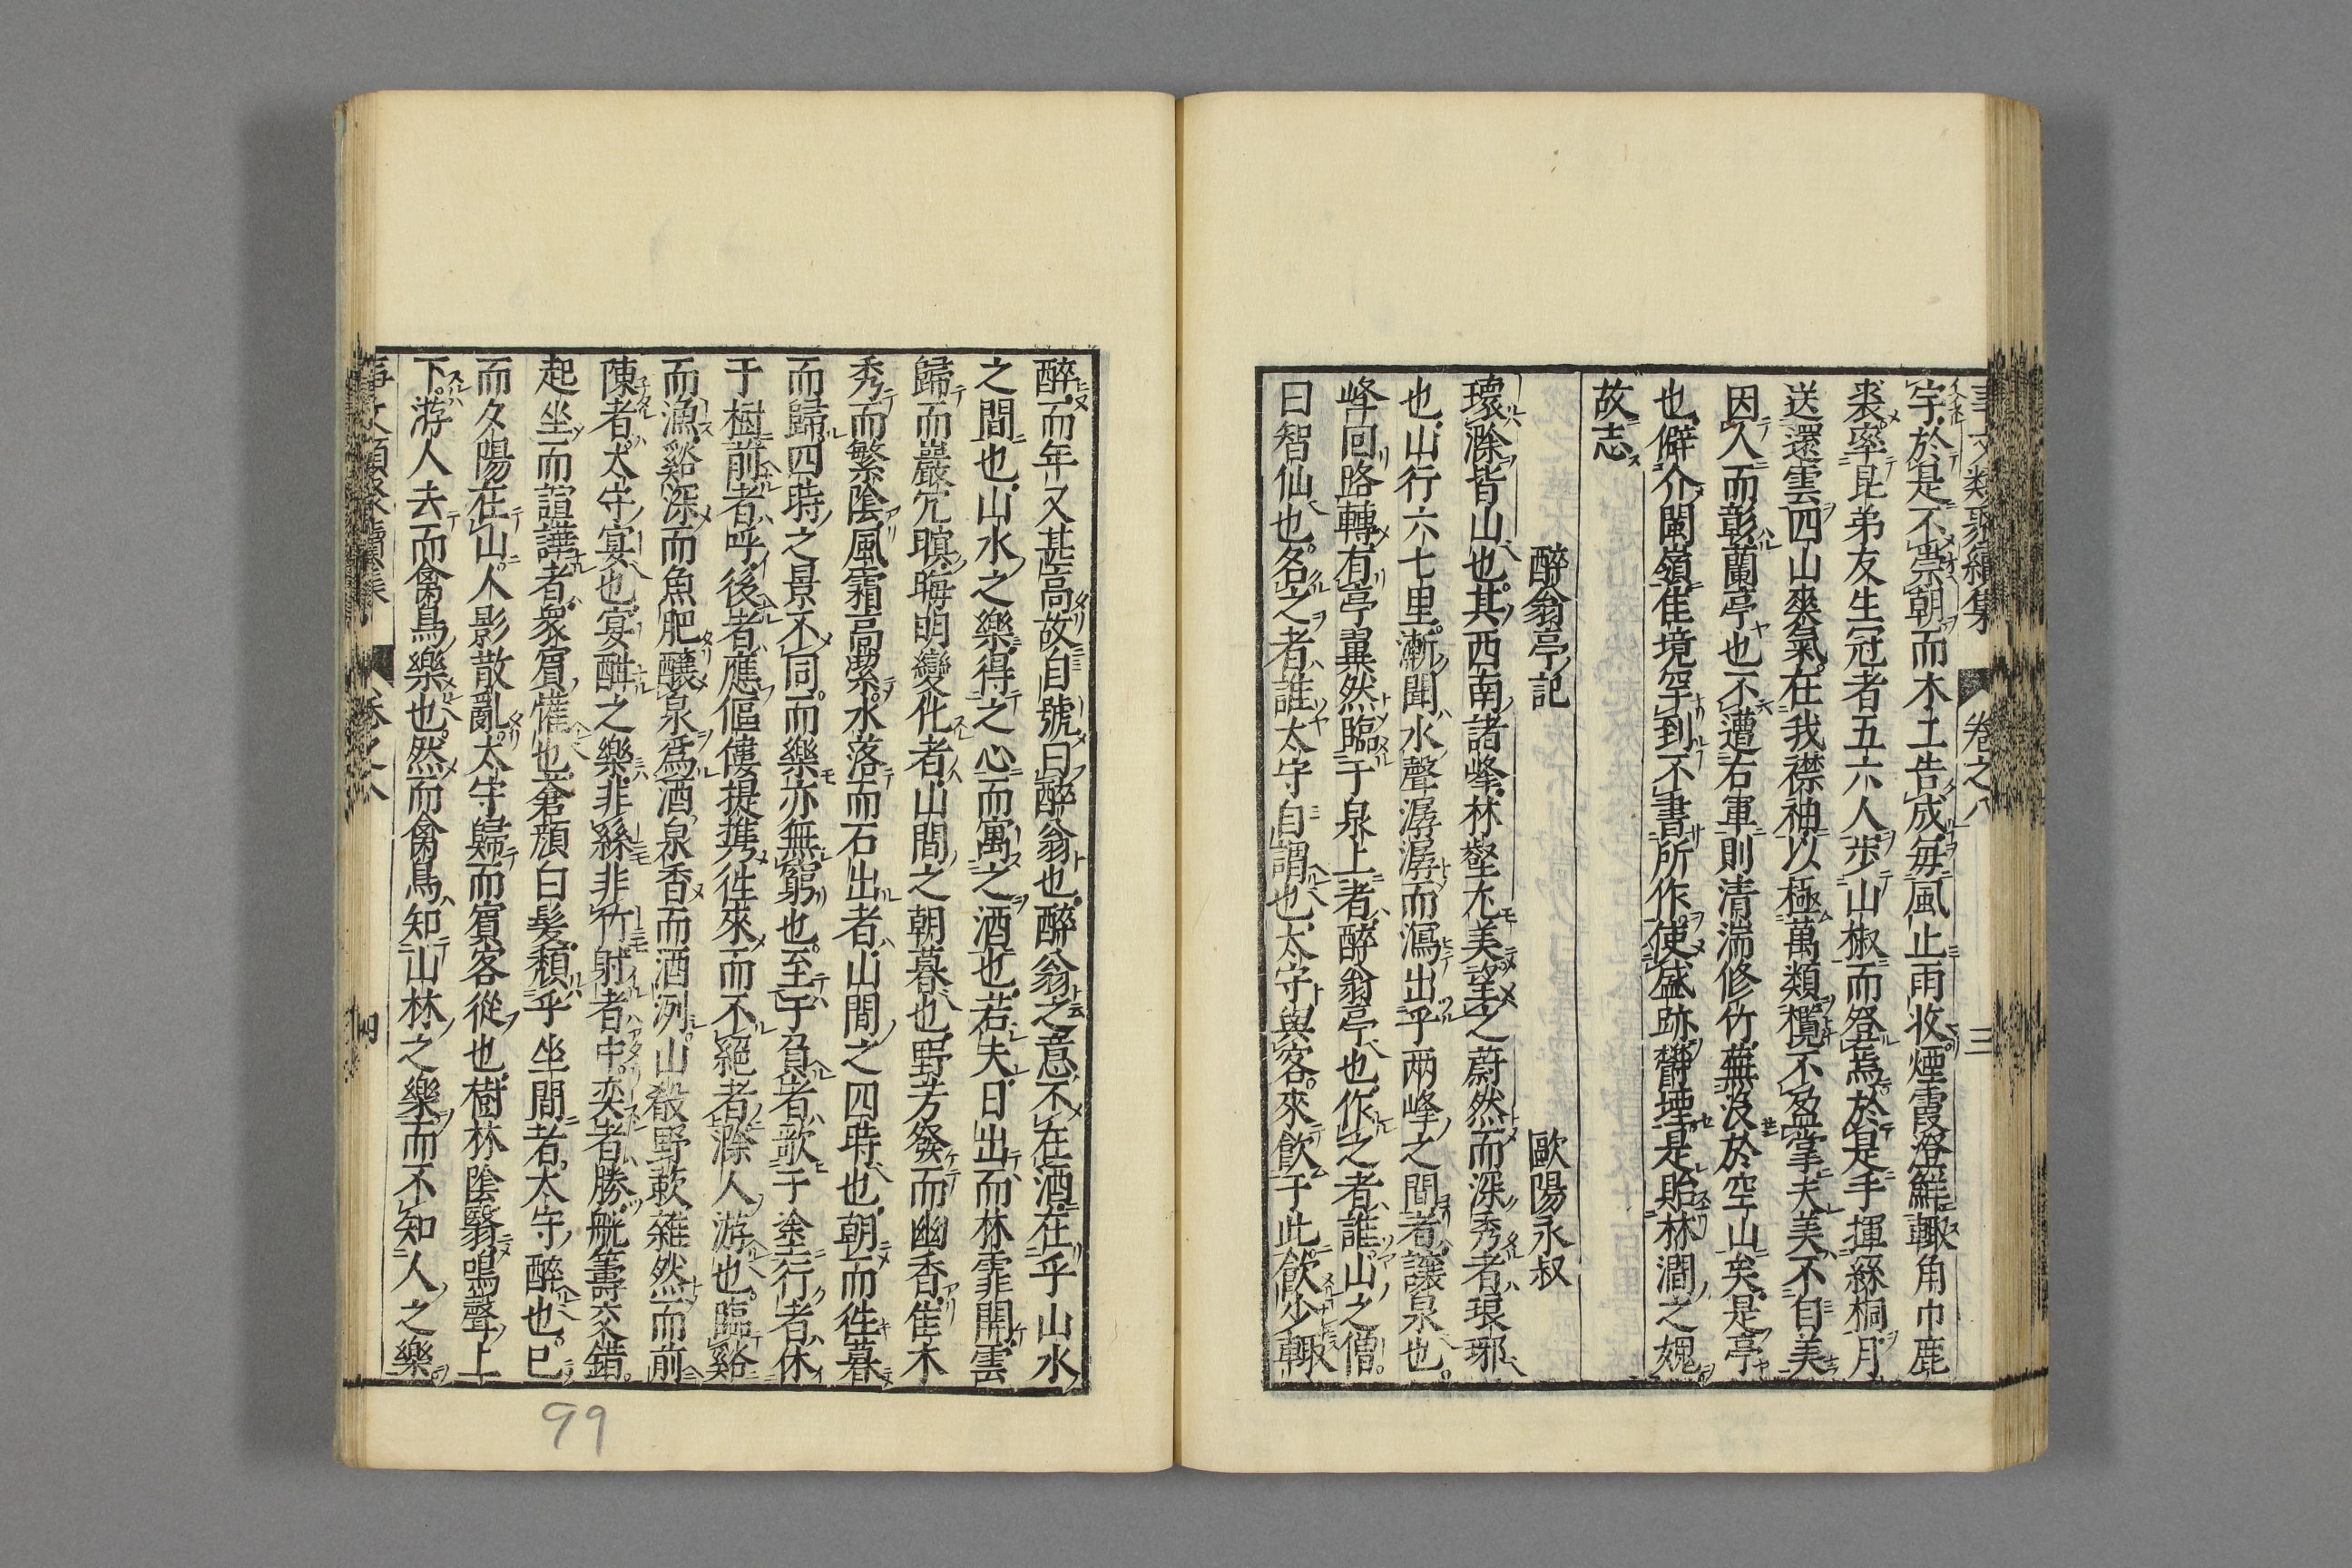 事文類聚續集 卷之八 三
宇於是不崇朝而木工告成每風止雨收煙霞澄鮮輙角巾鹿
裘率昆弟友生冠者五六人步山椒而登焉於是手揮絲桐月
送還雲四山爽氣在我襟袖以極萬類攬不盈掌夫美不自美
因人而彰蘭亭也不遭右軍則清湍修竹蕪沒於空山矣是亭
也僻介閩嶺佳境罕到不書所作使盛跡欝堙是貽林澗之媿
故志
醉翁亭記 歐陽永叔
環滁皆山也其西南諸峰林壑尤美望之蔚然而深秀者琅琊
也山行六七里漸聞水聲潺潺而瀉出乎兩峰之間者讓泉也
峰回路轉有亭翼然臨于泉上者醉翁亭也作之者誰山之僧
曰智仙也名之者誰太守自謂也太守與客來飲于此飲少輙
醉而年又甚高故自號曰醉翁也醉翁之意不在酒在乎山水
之間也山水之樂得之心而寓之酒也若夫日出而林霏開雲
歸而巖穴暝晦明變化者山間之朝暮也野芳發而幽香隹木
秀而繁陰風霜高潔水落而石出者山間之四時也朝而徃暮
而歸四時之景不同而樂亦無窮也至于負者歌于塗行者休
于樹前者呼後者應傴僂提携徃來而不絕者滁人游也臨谿
而漁谿深而魚肥釀泉爲酒泉香而酒洌山殽野蔌雜然而前
陳者太守宴也宴酣之樂非絲非竹射者中奕者勝觥籌交錯
起坐而諠譁者衆賓懽也蒼顏白髮頹乎坐間者太守醉也已
而夕陽在山人影散亂太守歸而賓客從也樹林陰翳鳴聲上
下游人去而禽鳥樂也然而禽鳥知山林之樂而不知人之樂
事文類聚續集 卷之八 四
99